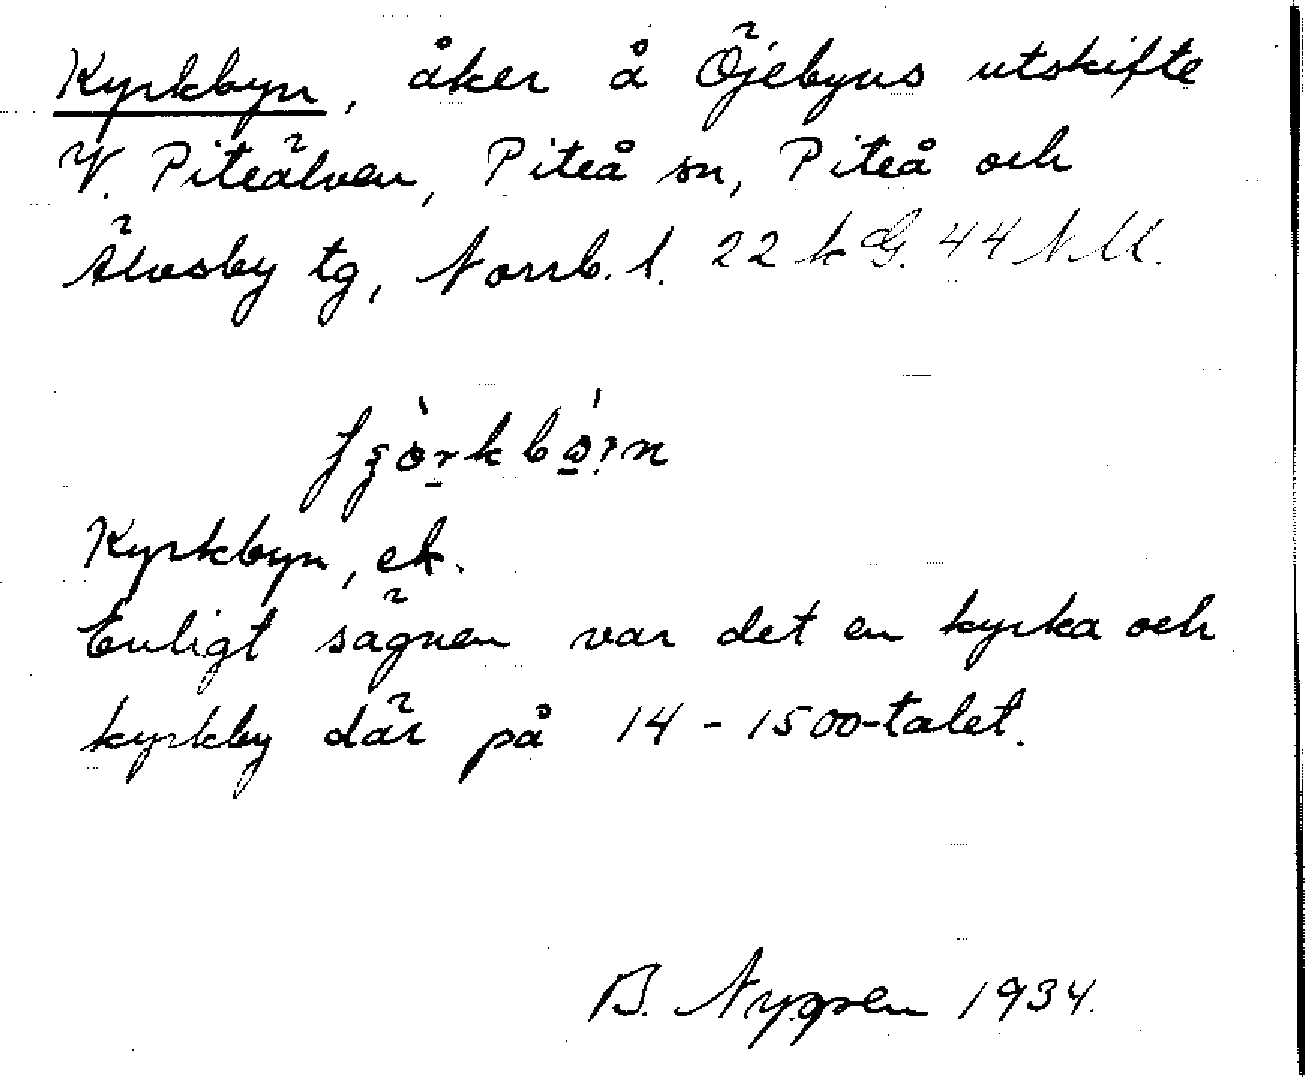 Kyrkbyn, åker å Öjebyns utskifte
V. Piteälven, Piteå sn, Piteå och
Älvsby tg, Norrb. l. 22 k G. 44 N.M.
Kyrkbyn, ek.
Enligt sägnen var det en kyrka och
kyrkby där på 14 - 1500-talet.
B. Nygren 1934.